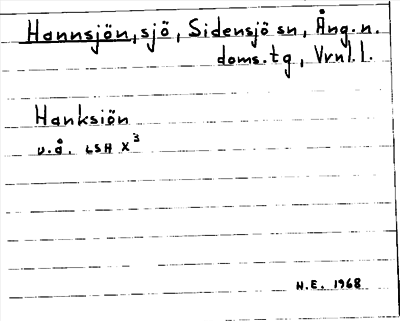 Hannsjön, sjö, Sidensjö sn, Ång. n.
doms. tg, Vrnl. l.
Hanksiön
u.å. LSH X³
H.E. 1968